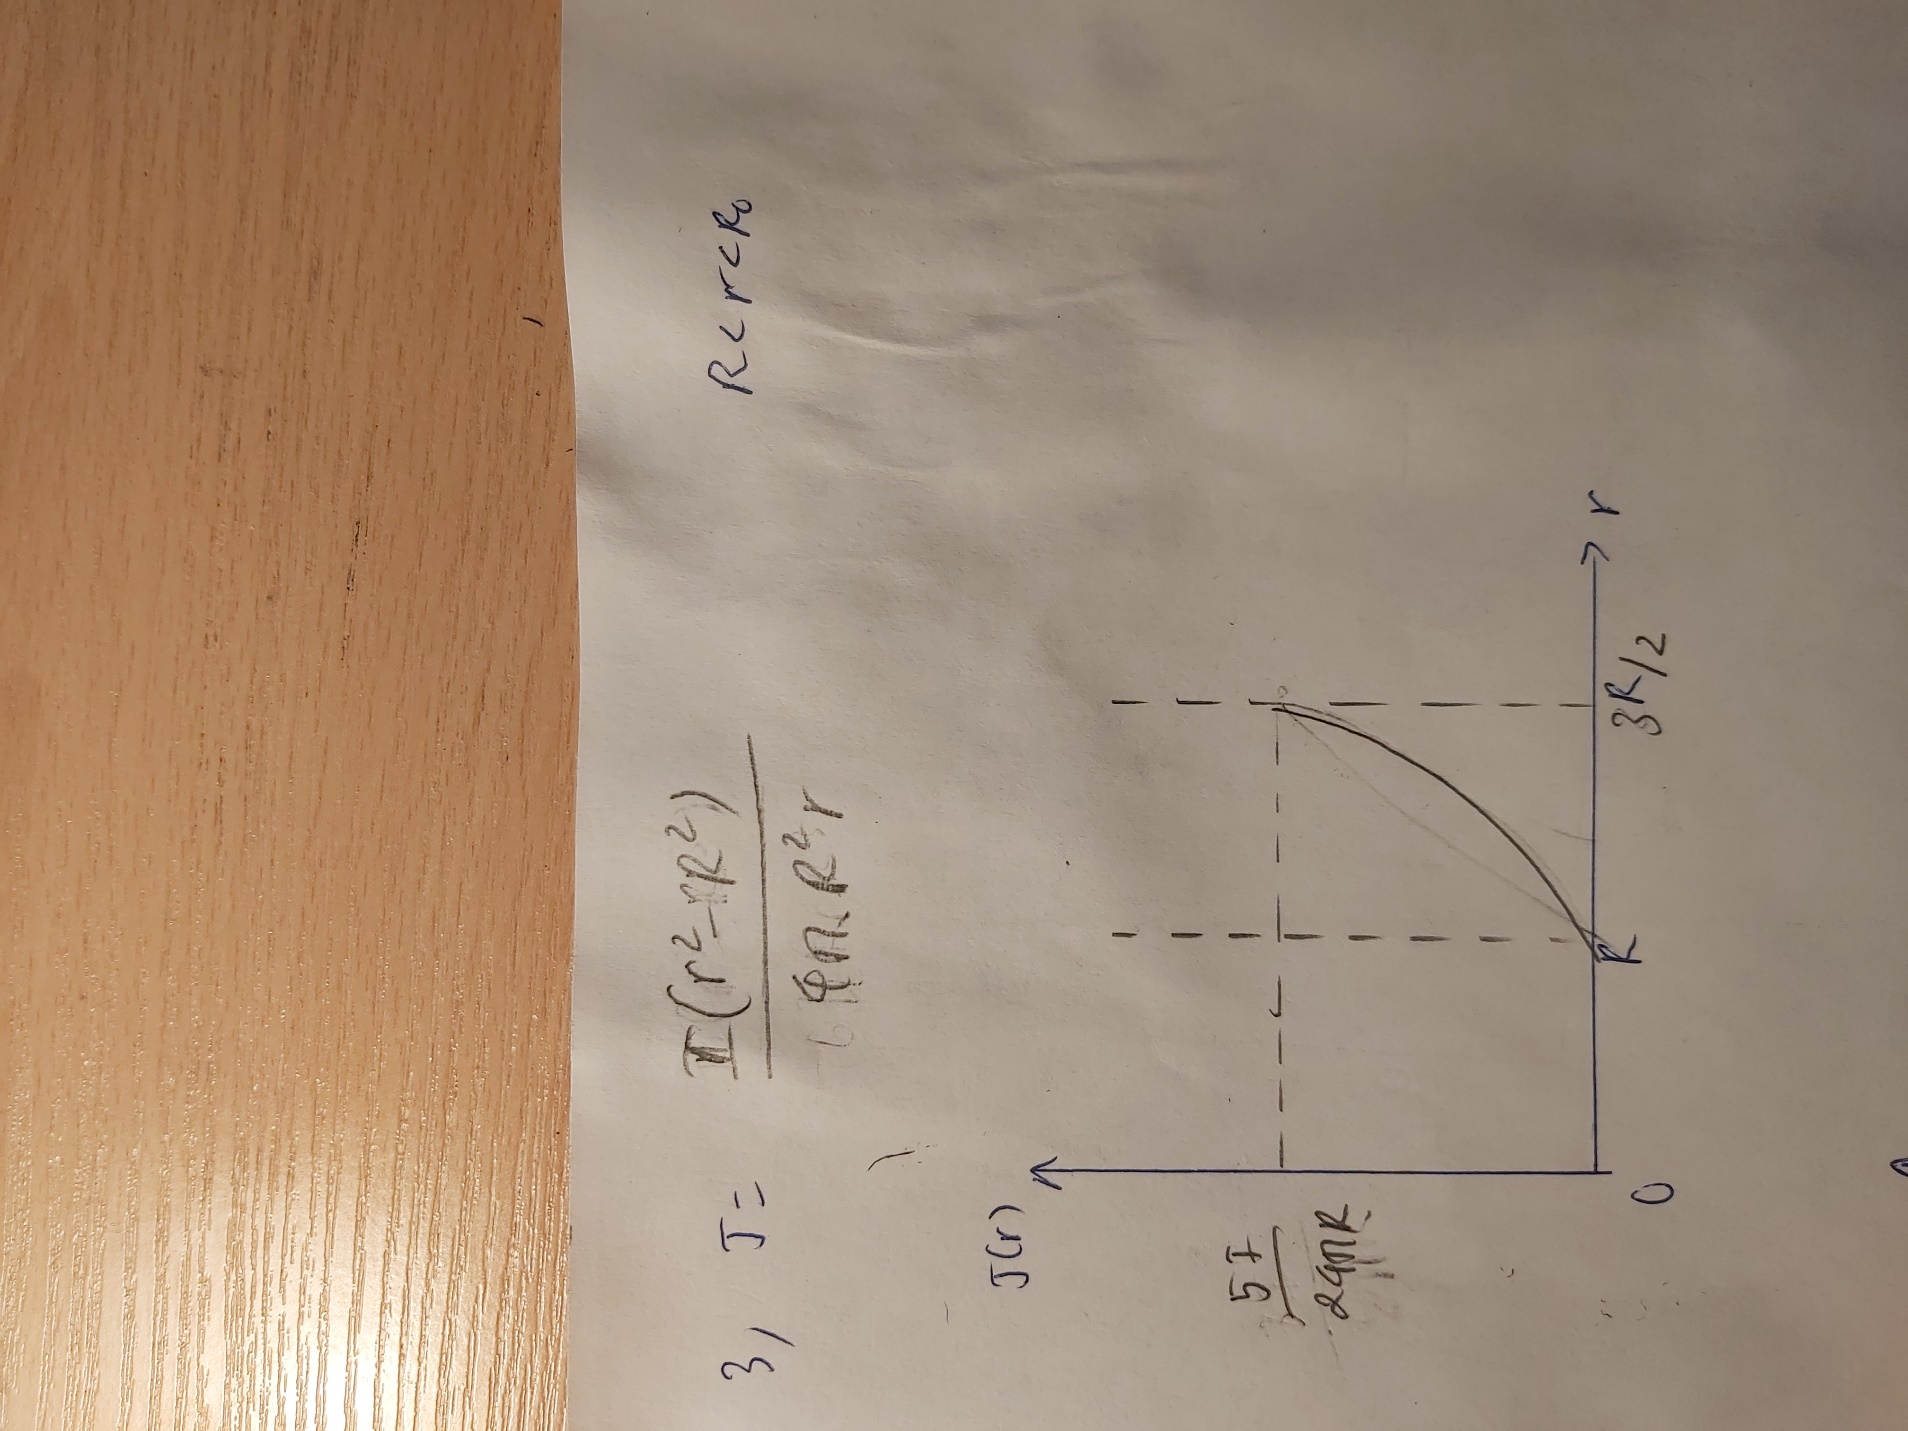 3) J= I(r²-R²) / 4πR²r R<r<R₀
J(r)
5I / 24πR
0 R 3R/2 r